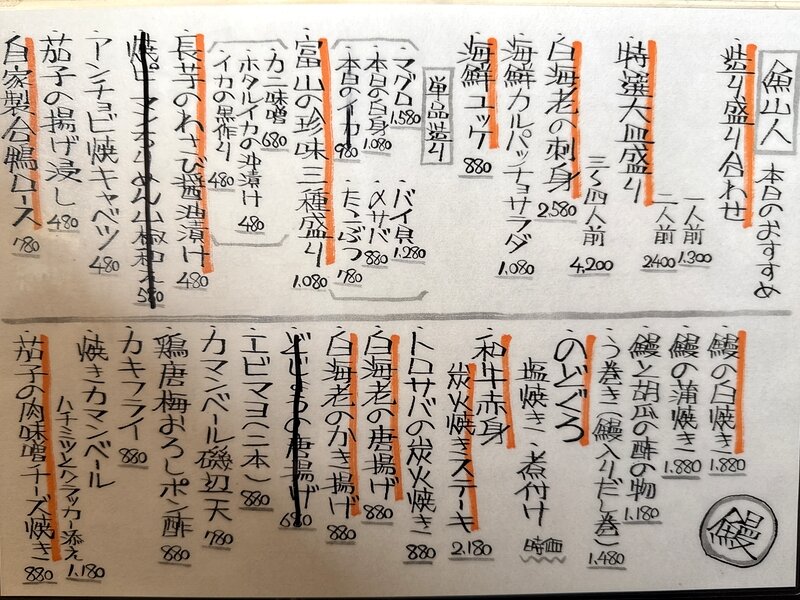 魚山人 本日のおすすめ
造り盛り合わせ
一人前 1.300
二人前 2400
特選大皿盛り
三〜四人前 4,200
白海老の刺身 2,580
海鮮カルパッチョサラダ 1,080
海鮮ユッケ 880
単品造り
マグロ 1.580
本日の白身 1.080
本日のイカ 980
バイ貝 1.280
〆サバ 880
たこぶつ 780
富山の珍味三種盛り 1,080
カニ味噌 680
ホタルイカの沖漬け 480
イカの黒作り 480
長芋のわさび醤油漬け 480
アンチョビ焼キャベツ 480
茄子の揚げ浸し 480
自家製合鴨ロース 780
鰻の白焼き 1.880
鰻の蒲焼き 1.880
鰻と胡瓜の酢の物 1.180
う巻き(鰻入りだし巻) 1,480
鰻
のどぐろ
塩焼き・煮付け 時価
和牛赤身
炭火焼きステーキ 2,180
トロサバの炭火焼き 880
白海老の唐揚げ 880
白海老のかき揚げ 880
どじょうの唐揚げ 680
エビマヨ(二本) 880
カマンベール磯辺天 780
鶏唐梅おろしポン酢 880
カキフライ 880
焼きカマンベール
ハチミツとクラッカー添え 1,180
茄子の肉味噌チーズ焼き 880